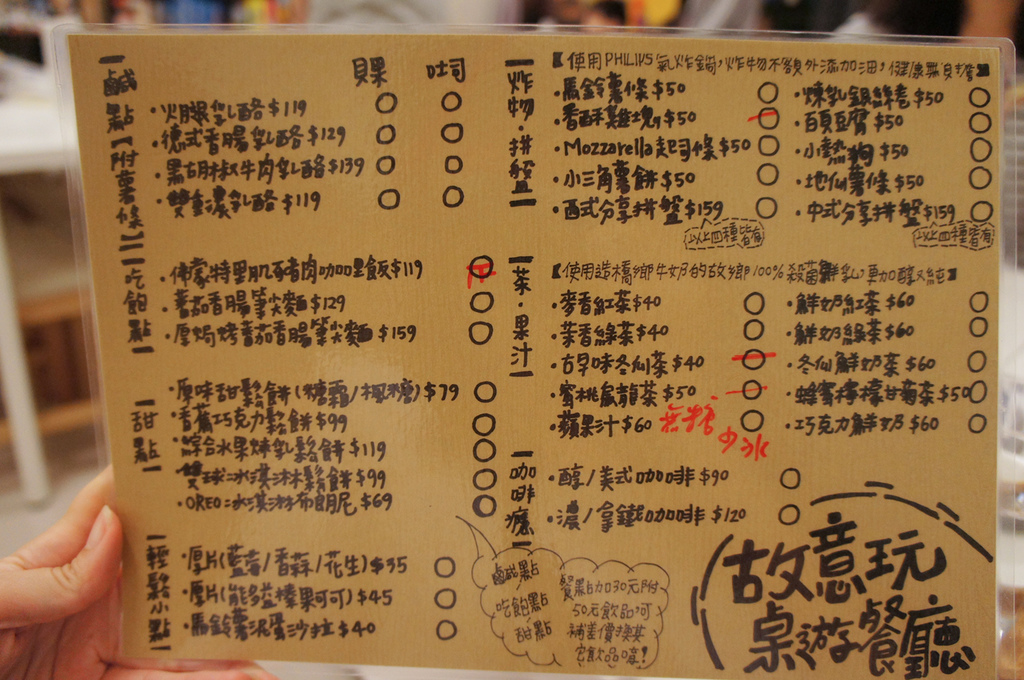 鹹點【附薯條】
貝果 吐司
・火腿乳酪$119
・德式香腸乳酪$129
・黑胡椒牛肉乳酪$139
・雙重濃乳酪$119
吃飽點
・佛蒙特里肌豬肉咖哩飯$119
・蕃茄香腸筆尖麵$129
・厚焗烤蕃茄香腸筆尖麵$159
甜點
・原味甜鬆餅(糖霜/楓糖)$79
・香蕉巧克力鬆餅$99
・綜合水果煉乳鬆餅$119
・雙球冰淇淋鬆餅$99
・OREO冰淇淋布朗尼$69
輕鬆小點
・厚片(藍莓/香蒜/花生)$35
・厚片(能多益榛果可可)$45
・馬鈴薯泥蛋沙拉$40
炸物・拼盤
【使用PHILIPS氣炸鍋,炸物不額外添加油,健康無負擔】
・馬鈴薯條$50
・香酥雞塊$50
・Mozzarella起司條$50
・小三角薯餅$50
・西式分享拼盤$159
(以上四種皆有)
・煉乳銀絲卷$50
・百頁豆腐$50
・小熱狗$50
・地瓜薯條$50
・中式分享拼盤$159
(以上四種皆有)
茶・果汁
【使用造橋鄉牛奶的故鄉100%殺菌鮮乳,更加醇又純】
・麥香紅茶$40
・茉香綠茶$40
・古早味冬瓜茶$40
・蜜桃烏龍茶$50
・蘋果汁$60
無糖
少冰
・鮮奶紅茶$60
・鮮奶綠茶$60
・冬瓜鮮奶茶$60
・蜂蜜檸檬甘菊茶$50
・巧克力鮮奶$60
咖啡癮
・醇/美式咖啡$90
・濃/拿鐵咖啡$120
鹹點
吃飽點
甜點
餐點加30元附
50元飲品,可
補差價換其
它飲品唷!
故意玩
桌遊餐廳